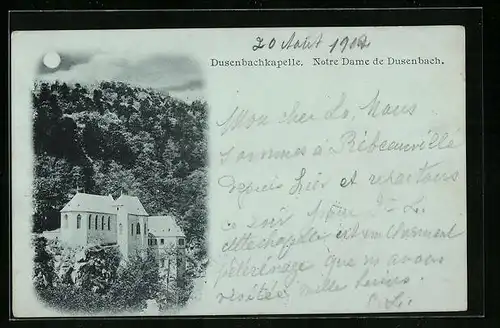 20 Août 1902
Dusenbachkapelle. Notre Dame de Dusenbach.
Mon cher Lo, Nous
sommes à Ribeauvillé
depuis hier et repartons
ce soir
est un charmant
pélérinage que nous avons
visitée, mille baisers.